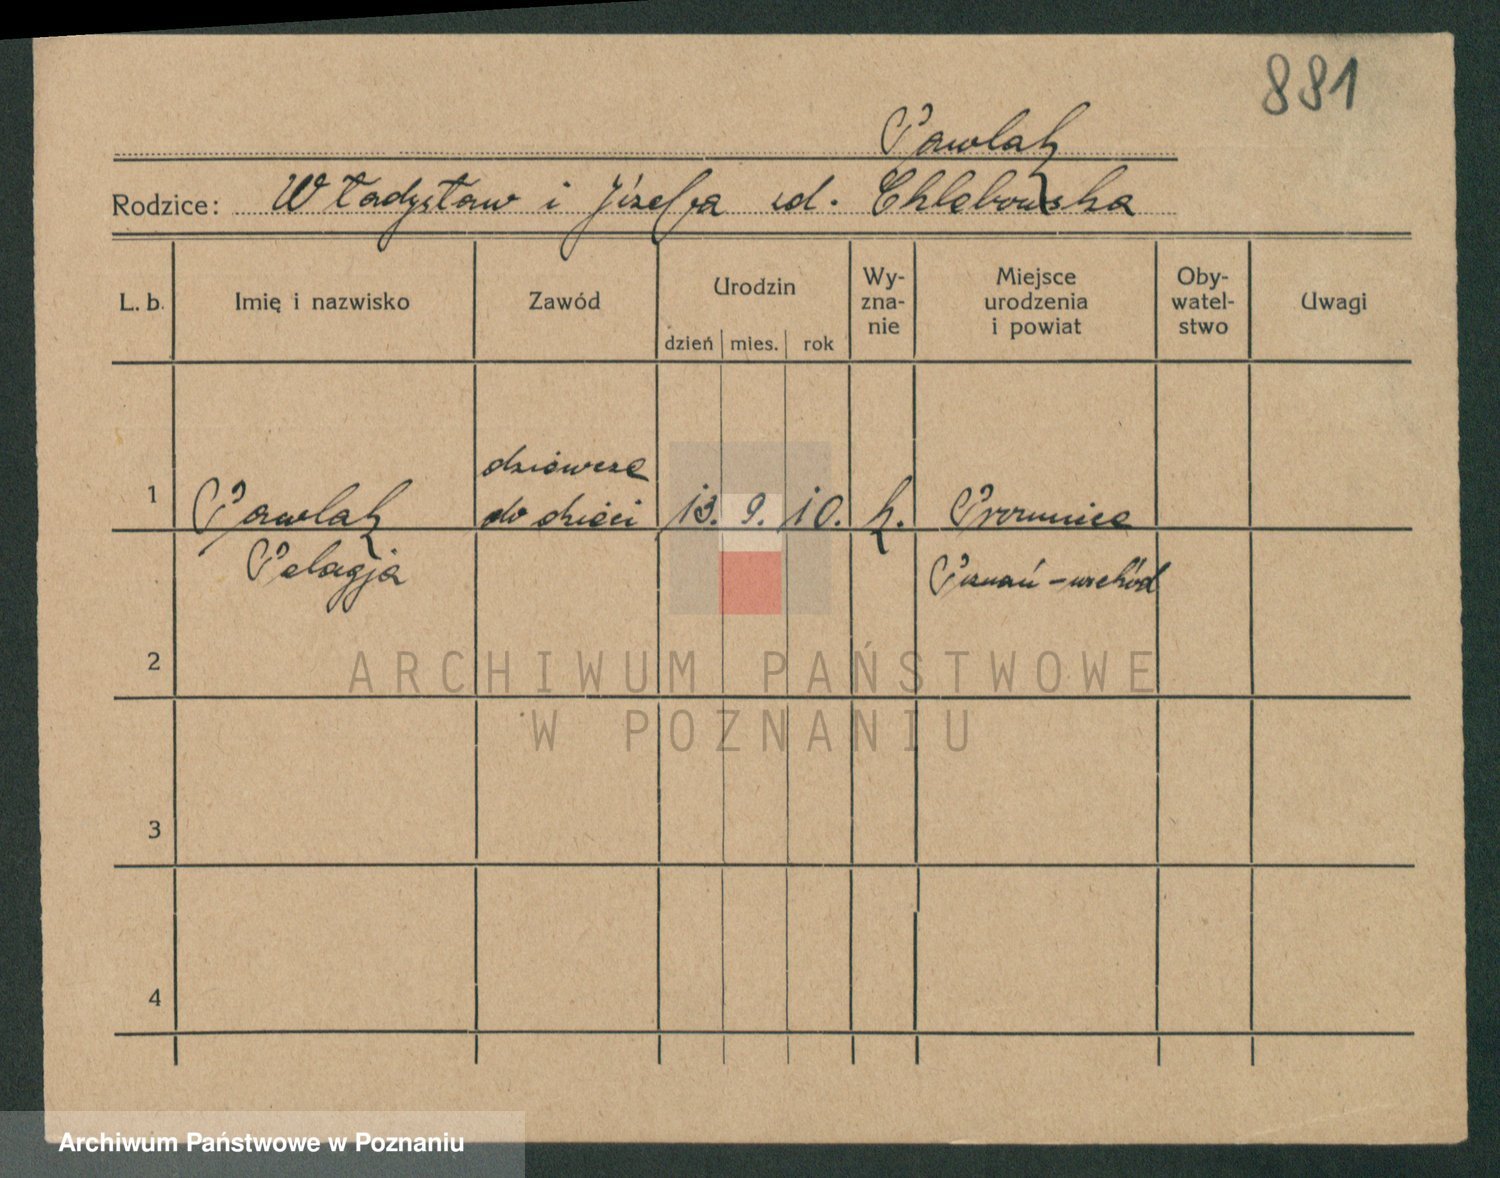 881
Pawlak
Rodzice: Władysław i Józefa ud. Chlebowska
L. b.
Imię i nazwisko
Zawód
Urodzin
dzień mies. rok
Wy-
zna-
nie
Miejsce
urodzenia
i powiat
Oby-
watel-
stwo
Uwagi
dziewcze
1 Pawlak do dzieci 13. 9. 10. k. Promnice
Pelagja Poznań-wschód
2
ARCHIWUM PAŃSTWOWE
W POZNANIU
3
4
Archiwum Państwowe w Poznaniu